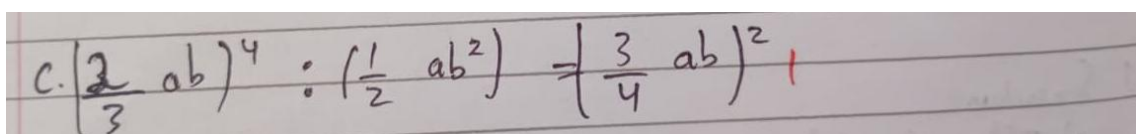 C. (2/3 ab)^4 : (1/2 ab²) = (3/4 ab)²